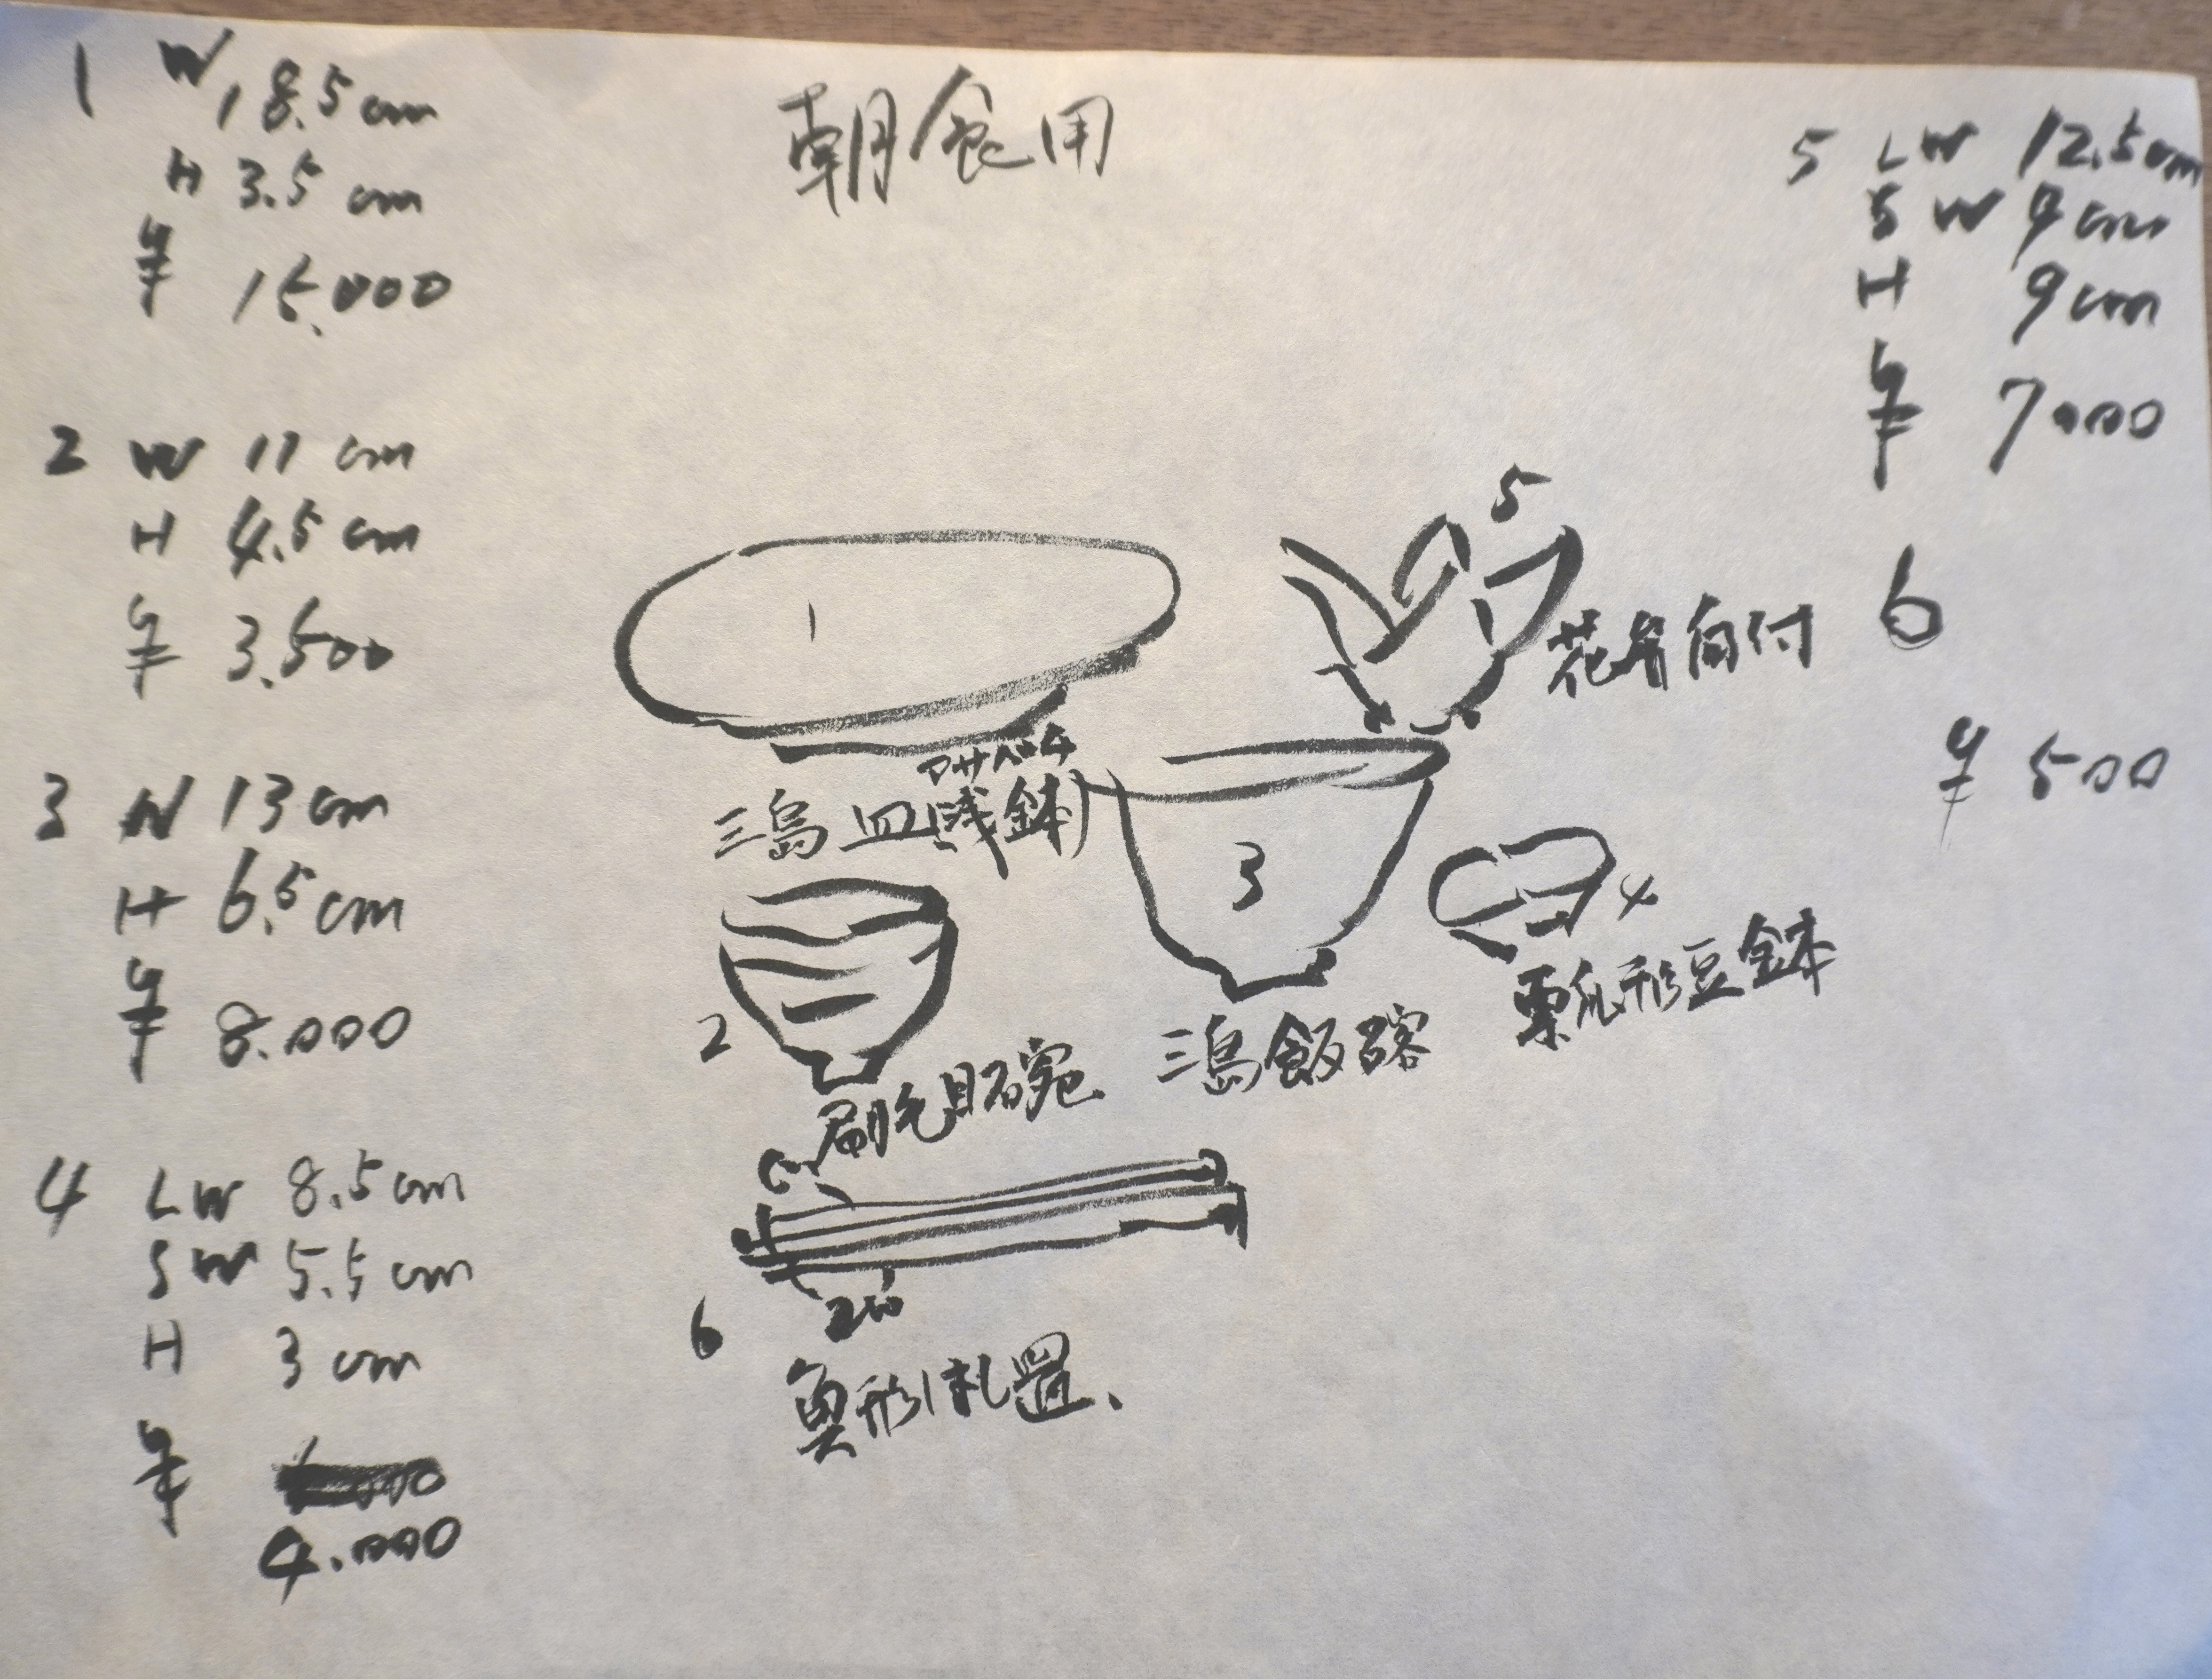 朝食用
1 W 18.5cm
H 3.5 cm
¥ 15.000
2 W 11 cm
H 4.5 cm
¥ 3.500
3 W 13 cm
H 6.5 cm
¥ 8.000
4 LW 8.5 cm
SW 5.5 cm
H 3 cm
¥
4.000
5 LW 12.5cm
SW 9cm
H 9cm
¥ 7000
6
¥ 500
1
三島皿(浅鉢)
5
花弁向付
3
三島飯碗
4
形豆鉢
2
刷毛目碗
6
魚形札置、